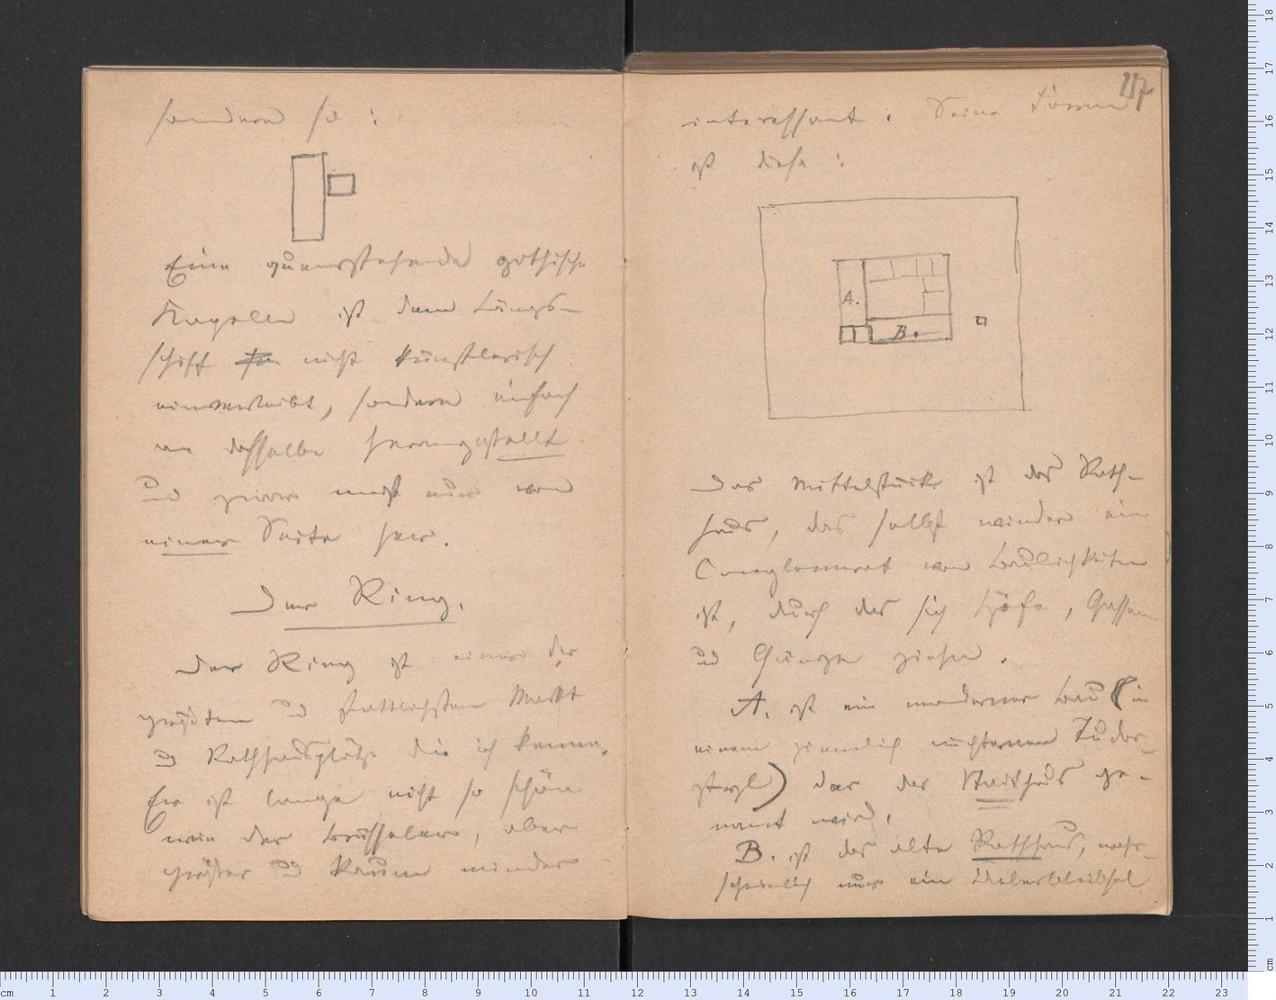 sondern so:
Eine querstehende gothische
Kapelle ist dem Längs-
schiff nicht künstlerisch
einverleibt, sondern einfach
an dasselbe herangestellt
und zwar meist nur von
einer Seite her.
Der Ring.
Der Ring ist einer der
größten und stattlichsten Markt
und Rathhausplätze die ich kenne.
Er ist lange nicht so schön
wie der Brüsseler, aber
größer und kaum minder
117
interessant. Seine Form
ist diese:
A.
B.
Das Mittelstück ist das Rath-
haus, das selbst wieder ein
Conglomerat von Baulichkeiten
ist, durch das sich Höfe, Gassen
und Gänge ziehen.
A. ist ein moderner Bau (in
einem ziemlich nüchternen Tudor-
styl) der das Stadthaus ge-
nannt wird.
B. ist das alte Rathhaus, wahr-
scheinlich nur ein Ueberbleibsel